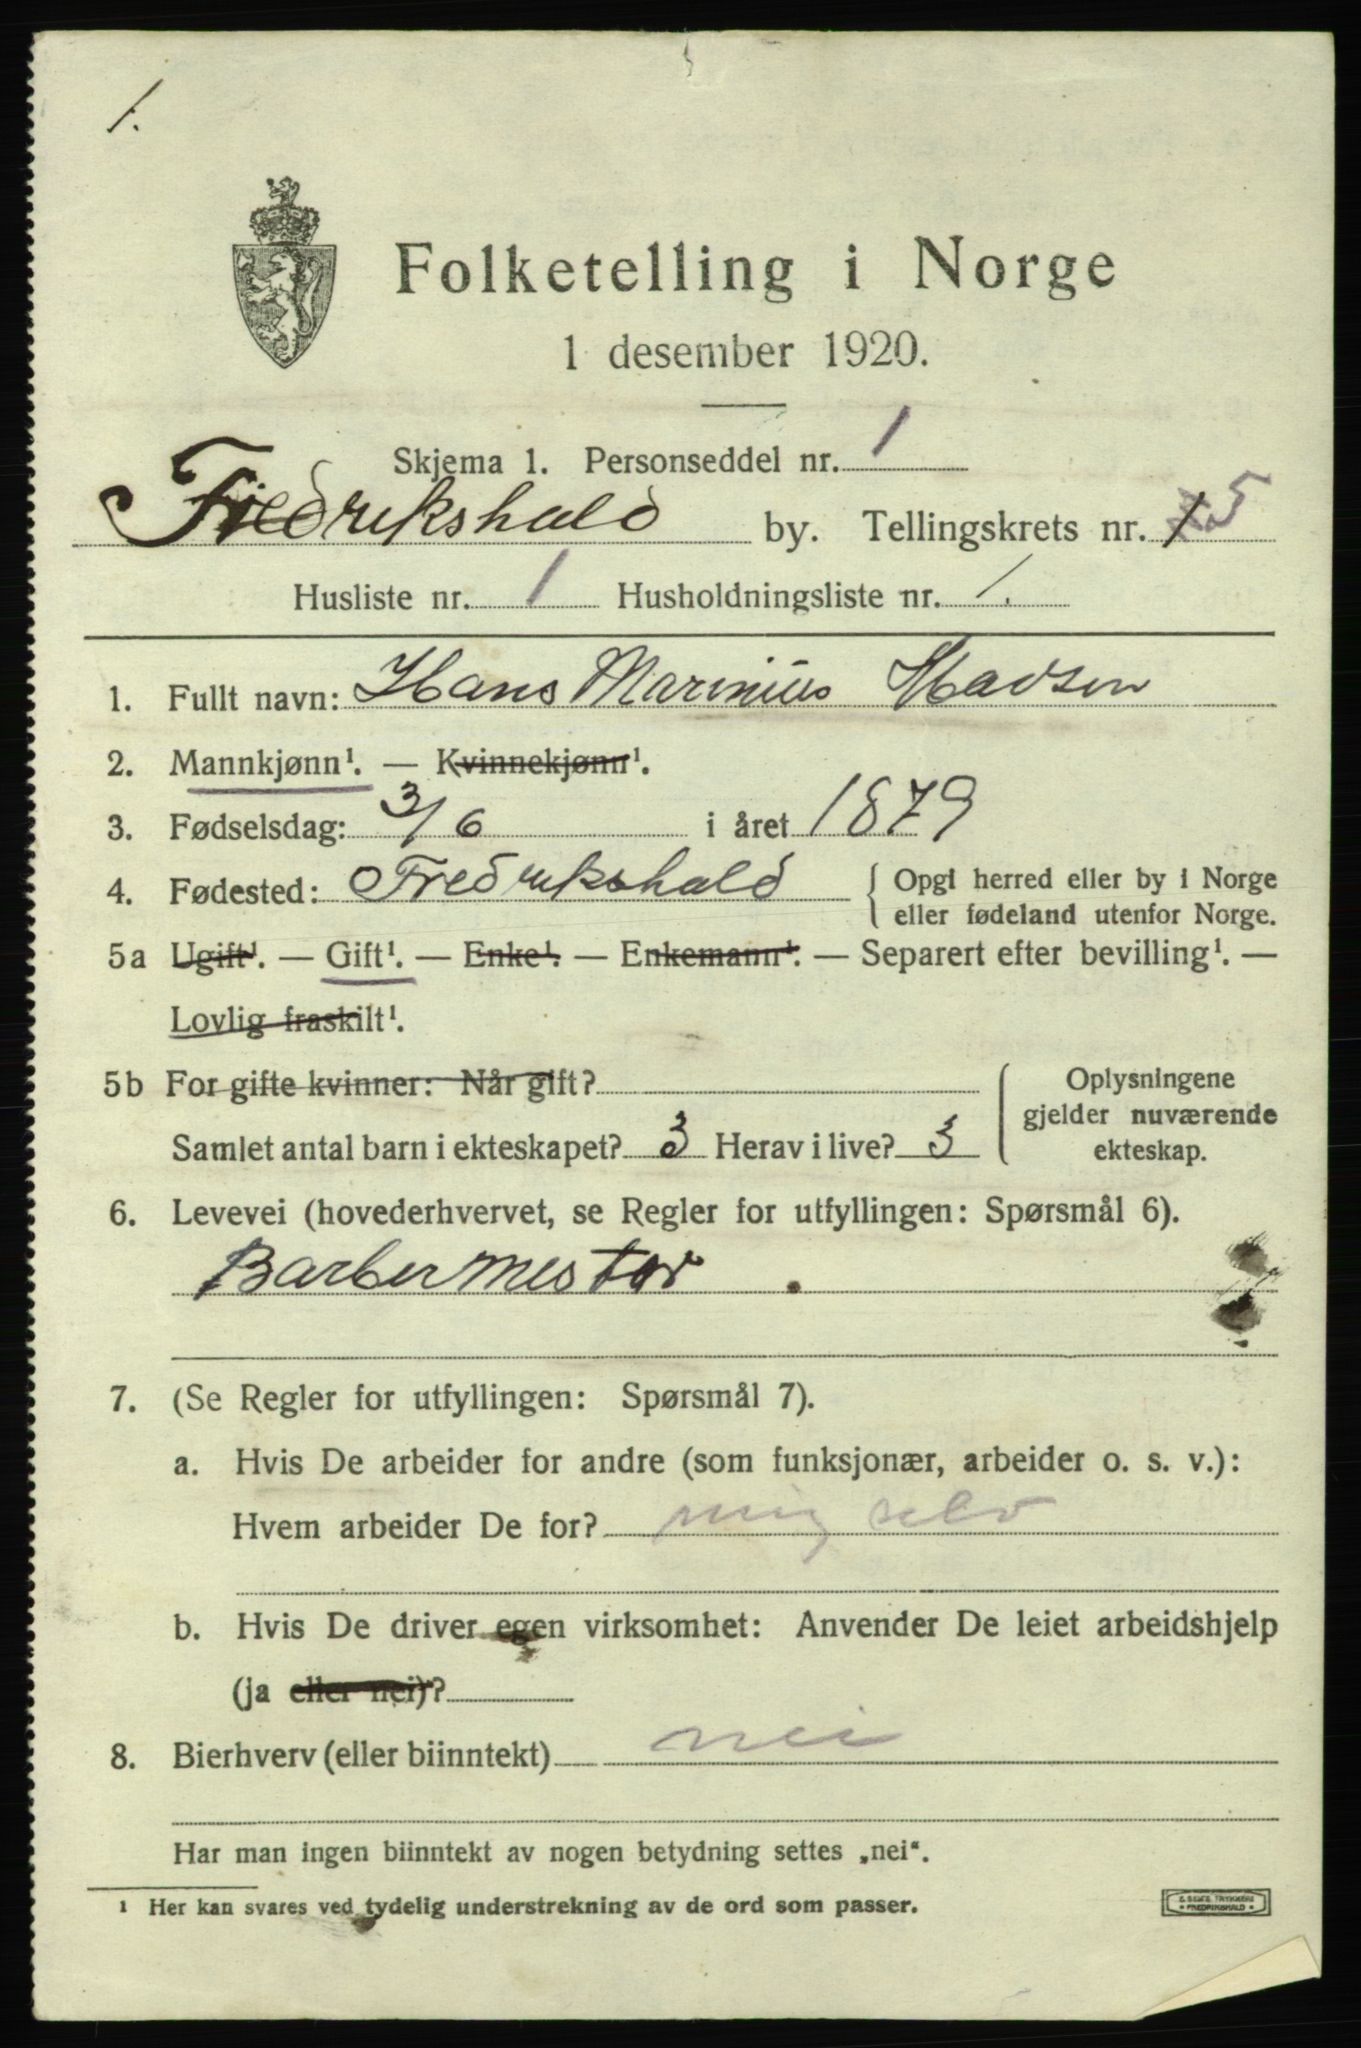 1.
Folketelling i Norge
1 desember 1920.
Skjema 1. Personseddel nr. 1
Fredrikshald by. Tellingskrets nr. 15
Husliste nr. 1 Husholdningsliste nr. 1.
1. Fullt navn: Hans Marinius Madsen
2. Mannkjønn¹. — Kvinnekjønn¹.
3. Fødselsdag: 3/6 i året 1879
4. Fødested: Fredrikshald { Opgi herred eller by i Norge
eller fødeland utenfor Norge.
5a Ugift¹. — Gift¹. — Enke¹. — Enkemann¹. — Separert efter bevilling¹. —
Lovlig fraskilt¹.
5b For gifte kvinner: Når gift?
Samlet antal barn i ekteskapet? 3 Herav i live? 3
Oplysningene
gjelder nuværende
ekteskap.
6. Levevei (hovederhvervet, se Regler for utfyllingen: Spørsmål 6).
Barbermester
7. (Se Regler for utfyllingen: Spørsmål 7).
a. Hvis De arbeider for andre (som funksjonær, arbeider o. s. v.):
Hvem arbeider De for? mig selv
b. Hvis De driver egen virksomhet: Anvender De leiet arbeidshjelp
(ja eller nei)?
8. Bierhverv (eller biinntekt) nei
Har man ingen biinntekt av nogen betydning settes „nei“.
¹ Her kan svares ved tydelig understrekning av de ord som passer.
E. SEMS TRYKKERI
FREDRIKSHALD